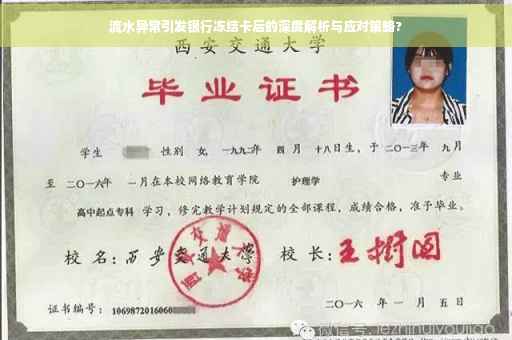 流水异常引发银行冻结卡后的深度解析与应对策略?
西安交通大学
毕业证书
学生 性别 女, 一九九二年 四月 十八日生, 于二〇一三年 九月
至 二〇一六年 一月在本校网络教育学院 护理学 专业
高中起点专科 学习, 修完教学计划规定的全部课程, 成绩合格, 准予毕业。
校 名: 西安交通大学 校 长: 王树国
证书编号: 1069872016060
二〇一六 年 一 月 五 日
微信号: jiezhihuiyoujiao